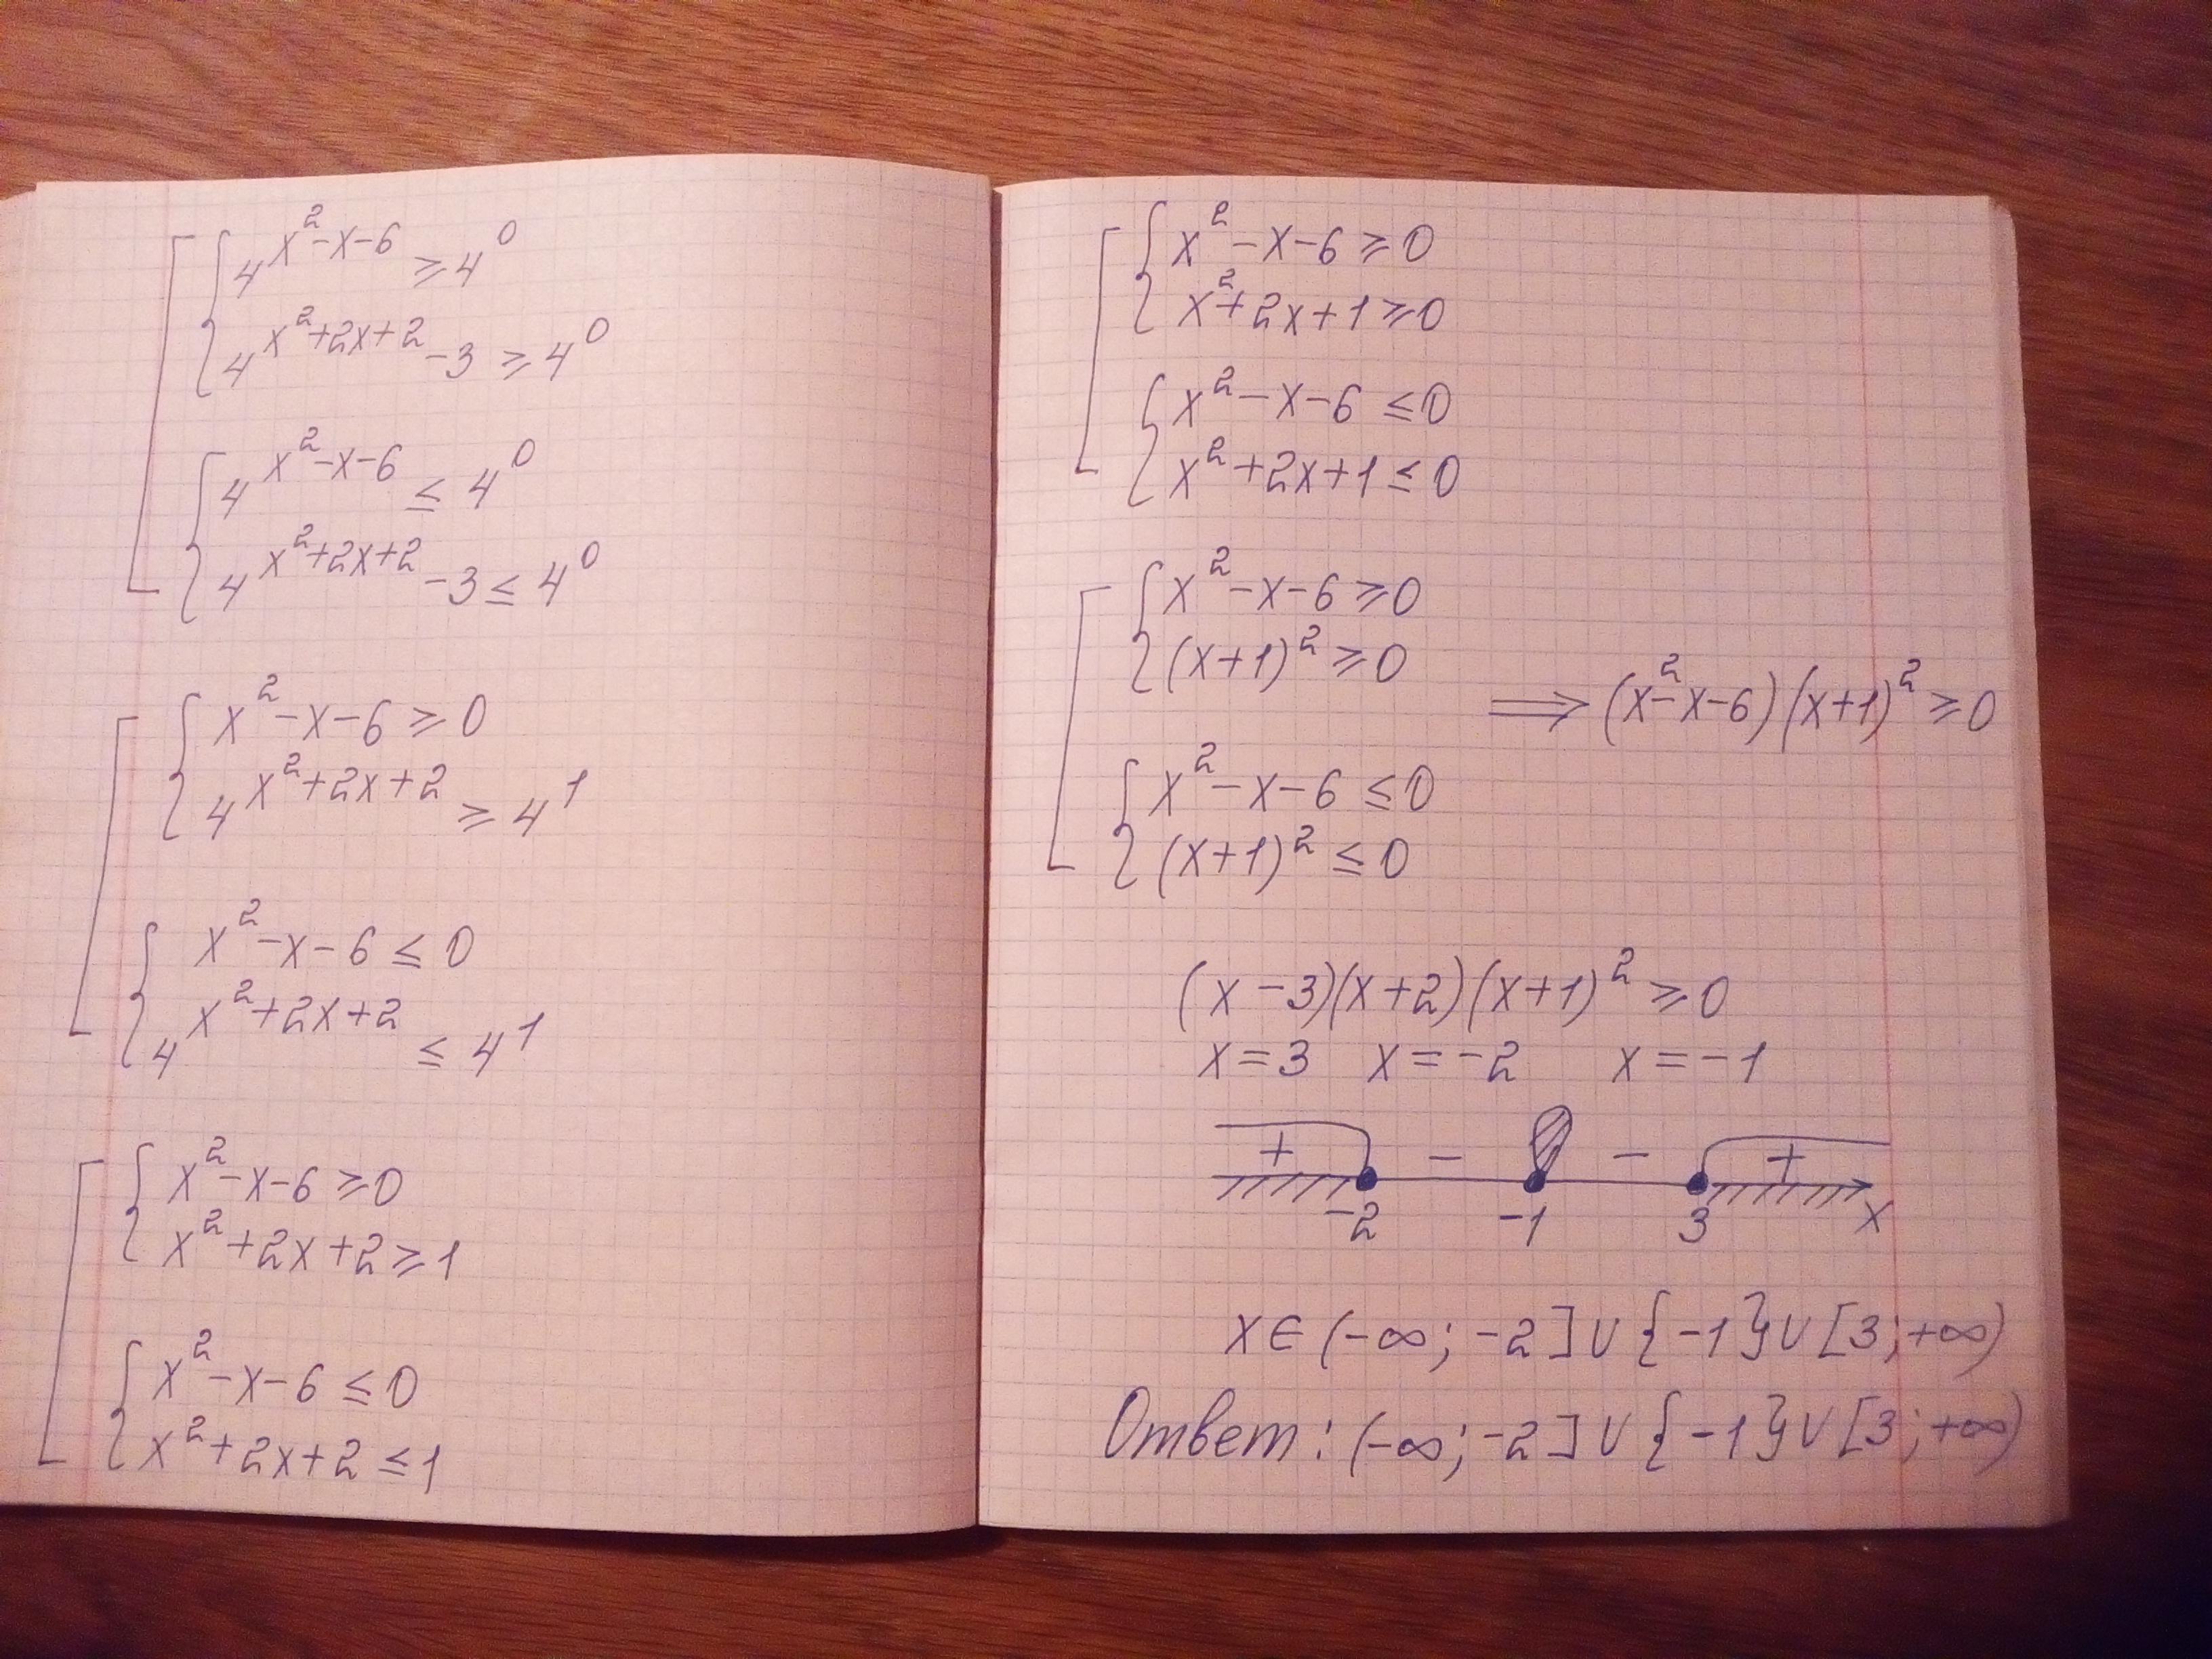 4^{x²-x-6} ≥ 4⁰
4^{x²+2x+2} - 3 ≥ 4⁰
4^{x²-x-6} ≤ 4⁰
4^{x²+2x+2} - 3 ≤ 4⁰
x²-x-6 ≥ 0
4^{x²+2x+2} ≥ 4¹
x²-x-6 ≤ 0
4^{x²+2x+2} ≤ 4¹
x²-x-6 ≥ 0
x²+2x+2 ≥ 1
x²-x-6 ≤ 0
x²+2x+2 ≤ 1
x²-x-6 ≥ 0
x²+2x+1 ≥ 0
x²-x-6 ≤ 0
x²+2x+1 ≤ 0
x²-x-6 ≥ 0
(x+1)² ≥ 0
⟹ (x²-x-6)(x+1)² ≥ 0
x²-x-6 ≤ 0
(x+1)² ≤ 0
(x-3)(x+2)(x+1)² ≥ 0
x=3 x=-2 x=-1
+ - - +
-2 -1 3 x
x∈(-∞; -2]∪{-1}∪[3;+∞)
Ответ: (-∞; -2]∪{-1}∪[3;+∞)